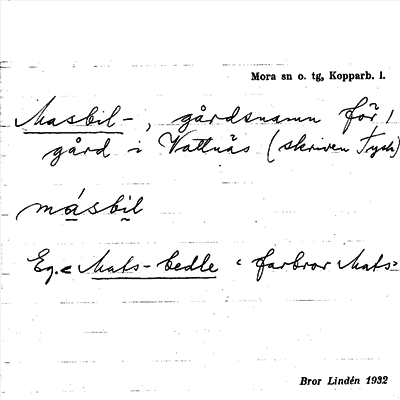 Mora sn o. tg, Kopparb. l.
Masbil-, gårdsnamn för
gård i Vattnäs (skriven Tysk)
måsbil
Eg. < Mats-bedle ‹ farbror Mats›
Bror Lindén 1932